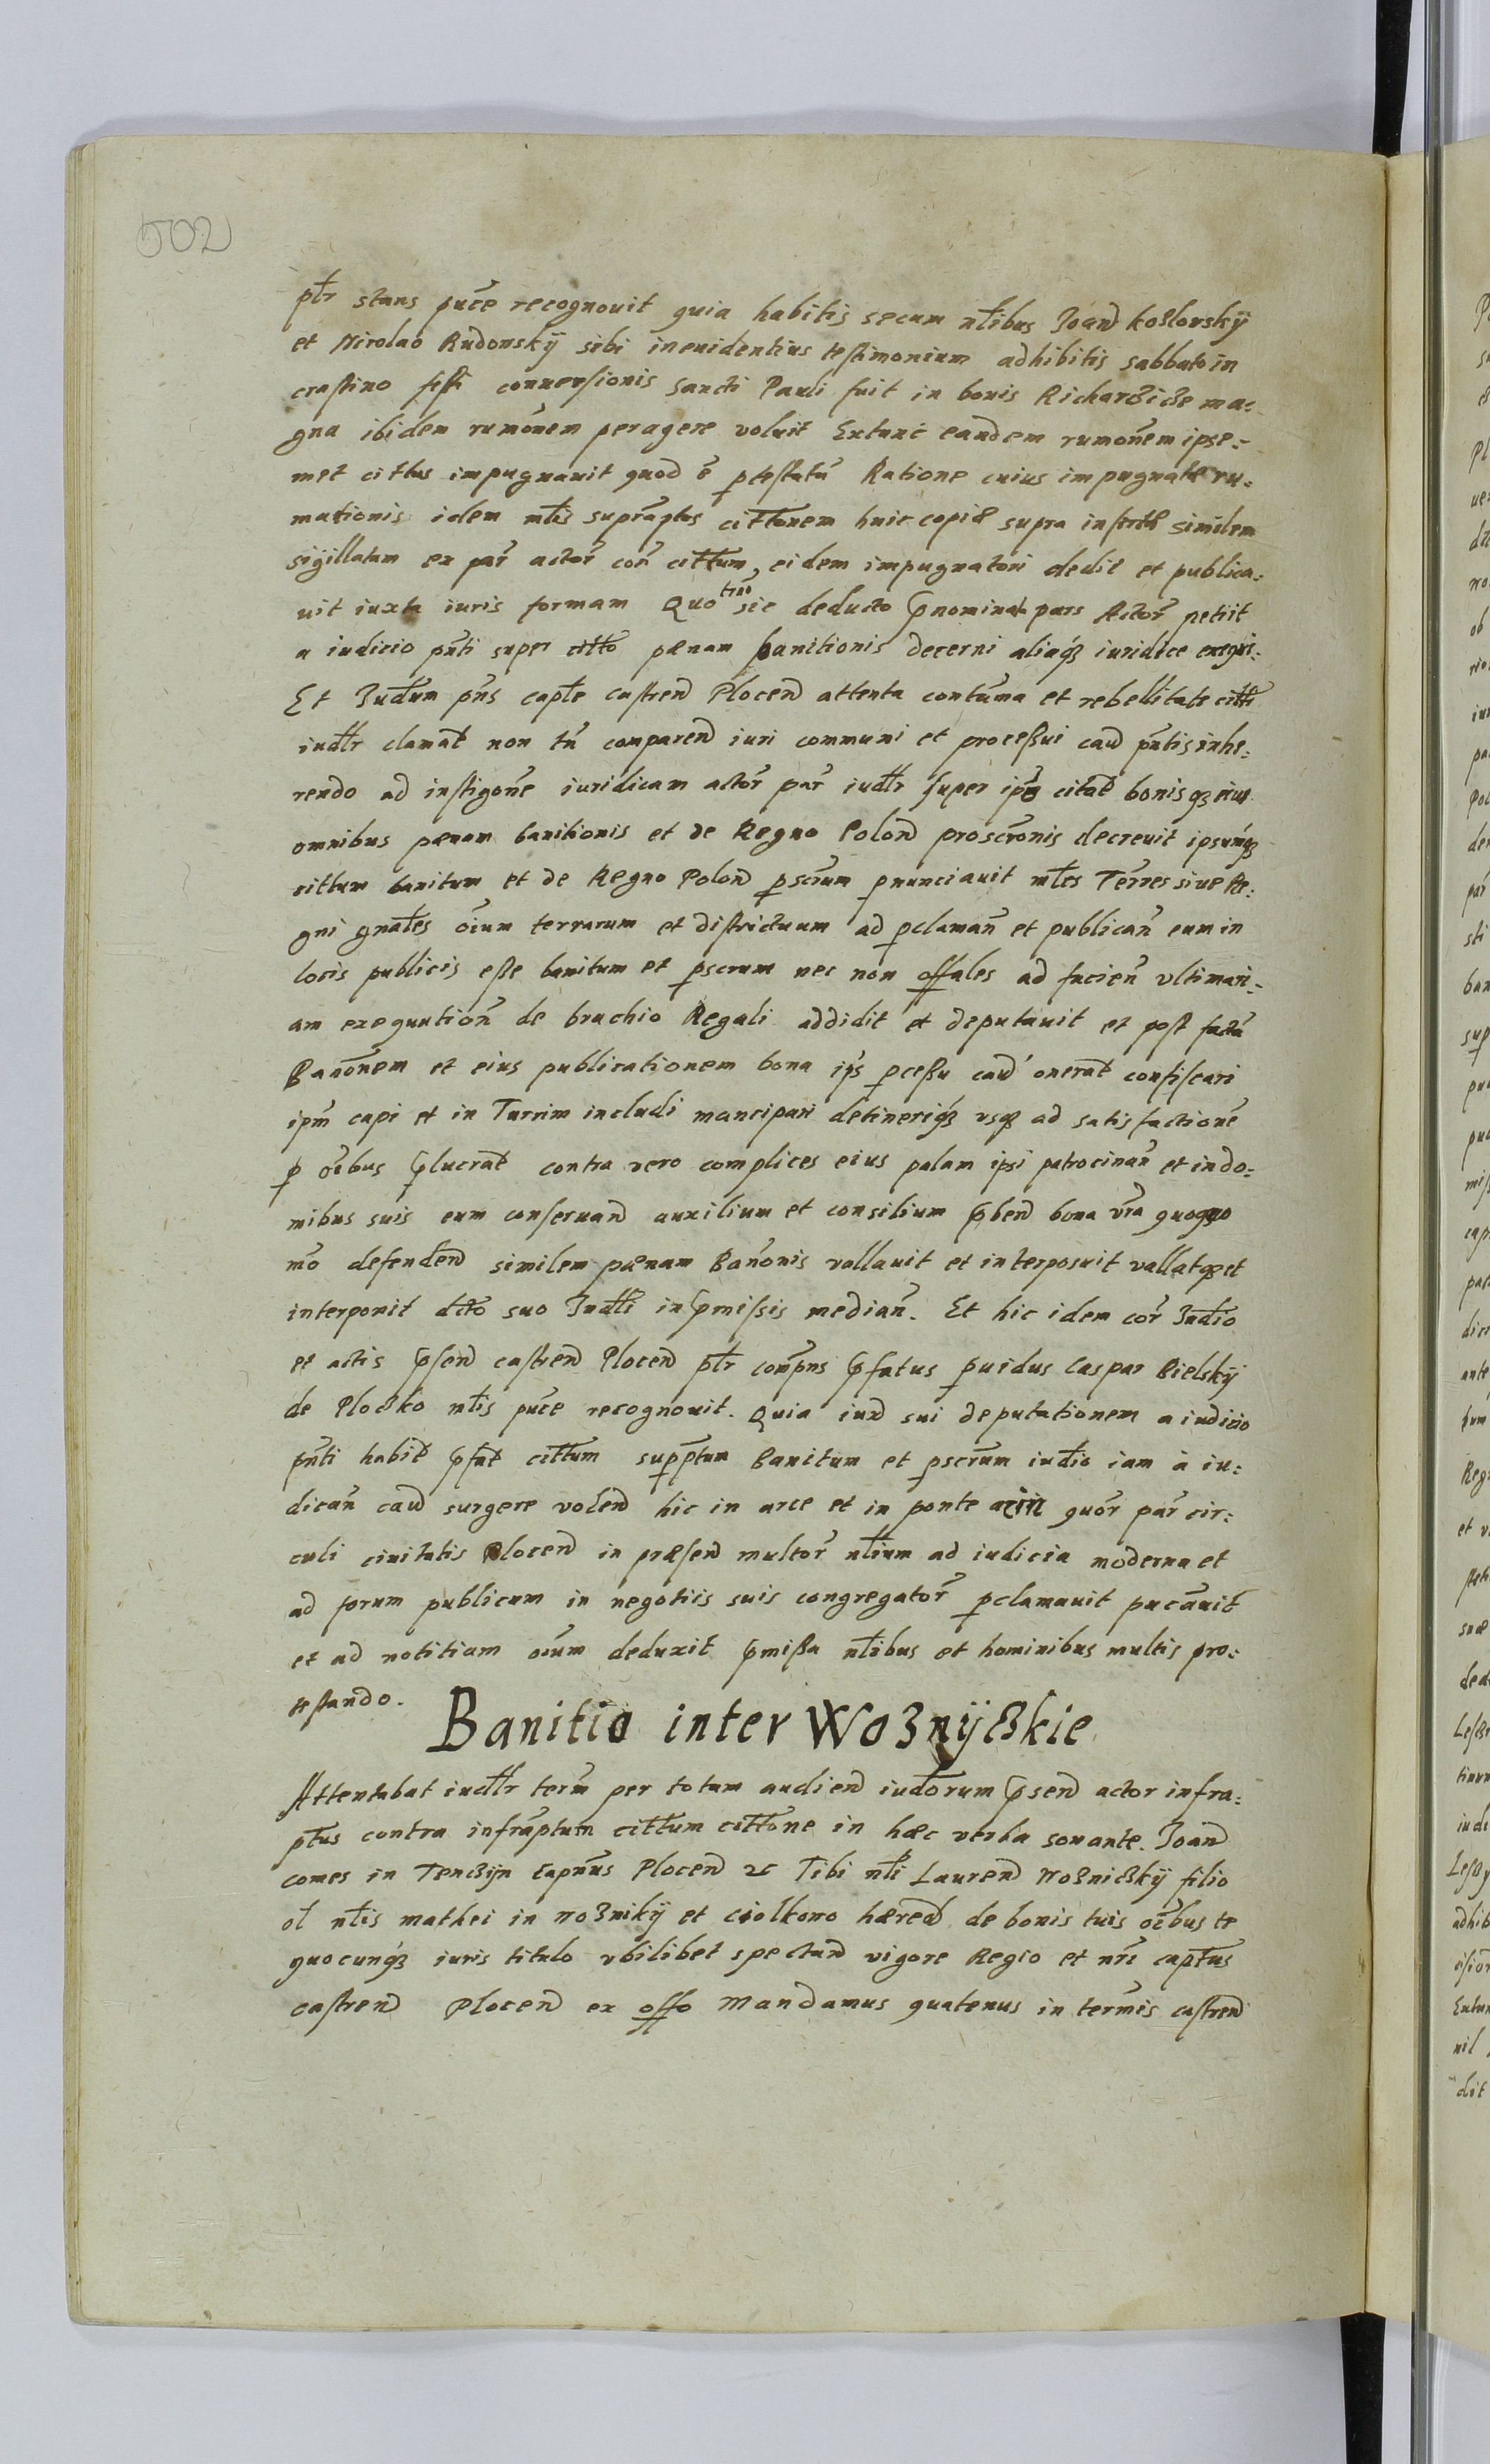 502
ptr stans puce recognouit quia habitis secum ntibus Joan Kozlovskÿ
et Nicolao Rudowskÿ sibi ineuidentius testimonium adhibitis sabbato in
crastino festi conuersionis sancti Pauli fuit in bonis Richarzicze ma:
gna ibidem rumonem peragere voluit Extunc eandem rumonem ipse:
met cittus impugnauit quod e ptestatu Ratione cuius impugnatæ ru:
mationis idem mtis supraptus cittonem huic copiæ supra insertæ similem
sigillatum ex par actor con cittum, eidem impugnatori dedit et publica:
uit iuxta iuris formam Quo trno sic deducto pnominat pars Actor petiit
a iudicio pnti super citto pænam banitionis decerni aliaqz iuridice exequi:
Et Judum pns capte castren Plocen attenta contuma et rebellitate citti
iudtr clamat non tn comparen iuri communi et processui caus pntis inhe:
rendo ad instigone iuridicam actor par iudtr super ipo citat bonisqz eius
omnibus pænam banitionis et de Regno Polon proscronis decreuit ipsumqz
cittum banitum et de Regno Polon pscrum pnunciauit mtes Terres siue Re:
gni gnales oium terrarum et districtuum ad pclaman et publican eum in
locis publicis esse banitum et pscrum nec non offales ad facien vltimari:
am exequution de brachio Regali addidit et deputauit et post facta
Banonem et eius publicationem bona ips pcessu caus onerat confiscari
ipm capi et in Turrim includi mancipari detineriqz vsqz ad satisfactione
p oibus plucrat contra vero complices eius palam ipsi patrocinan et in do:
mibus suis eum conseruan auxilium et consilium pben bona vra quoquo
mo defenden similem pænam Banonis vallauit et interposuit vallatqz et
interponit dcto suo Judtli in pmissis median. Et hic idem cor Judio
et actis psen castren Plocen ptr compns pfatus puidus Caspar Bielskÿ
de Plocko mtis puce recognouit. Quia iux sui deputationem a iudicio
pnti habit pfat cittum supptum Banitum et pscrum iudio iam a iu:
dican caus surgere volen hic in arce et in ponte acin quor par cir:
culi ciuitatis Plocen in præsen multor ntium ad iudicia moderna et
ad forum publicum in negotiis suis congregator pclamauit pucauit
et ad notitiam oium deduxit pmissa ntibus et hominibus multis pro:
testando.
Banitio inter Woznÿczkie
Attentabat iudtr term per totam audien iudiorum psen actor infra:
ptus contra infraptum cittum cittone in hæc verba sonante. Joan
comes in Tenczyn capnus Plocen etc Tibi ntli Lauren Wozniczkÿ filio
ol ntis mathei in Wozniky et Ciolkowo hæred de bonis tuis oibus te
quocunqz iuris titulo vbilibet spectan vigore Regio et nri captus
castren Plocen ex offo Mandamus quatenus in termis castren